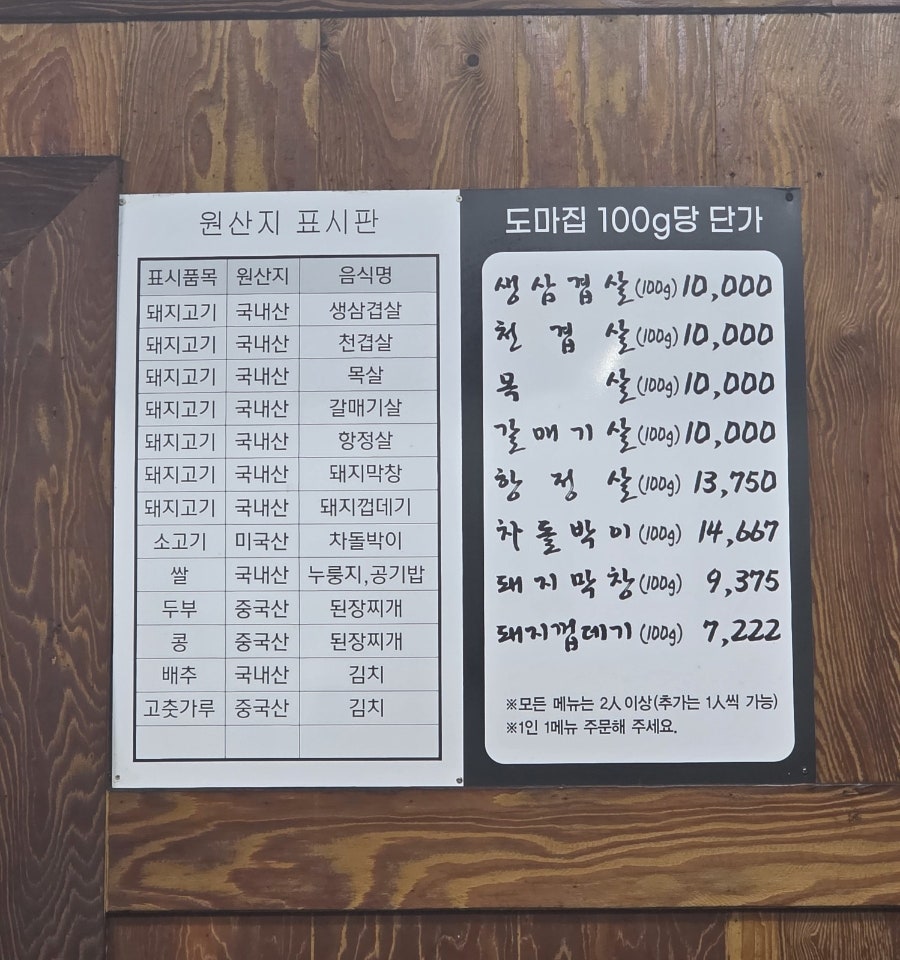 원산지 표시판
표시품목 원산지 음식명
돼지고기 국내산 생삼겹살
돼지고기 국내산 천겹살
돼지고기 국내산 목살
돼지고기 국내산 갈매기살
돼지고기 국내산 항정살
돼지고기 국내산 돼지막창
돼지고기 국내산 돼지껍데기
소고기 미국산 차돌박이
쌀 국내산 누룽지,공기밥
두부 중국산 된장찌개
콩 중국산 된장찌개
배추 국내산 김치
고춧가루 중국산 김치
도마집 100g당 단가
생삼겹살(100g) 10,000
천겹살(100g) 10,000
목살(100g) 10,000
갈매기살(100g) 10,000
항정살(100g) 13,750
차돌박이(100g) 14,667
돼지막창(100g) 9,375
돼지껍데기(100g) 7,222
※모든 메뉴는 2人이상(추가는 1人씩 가능)
※1인 1메뉴 주문해 주세요.